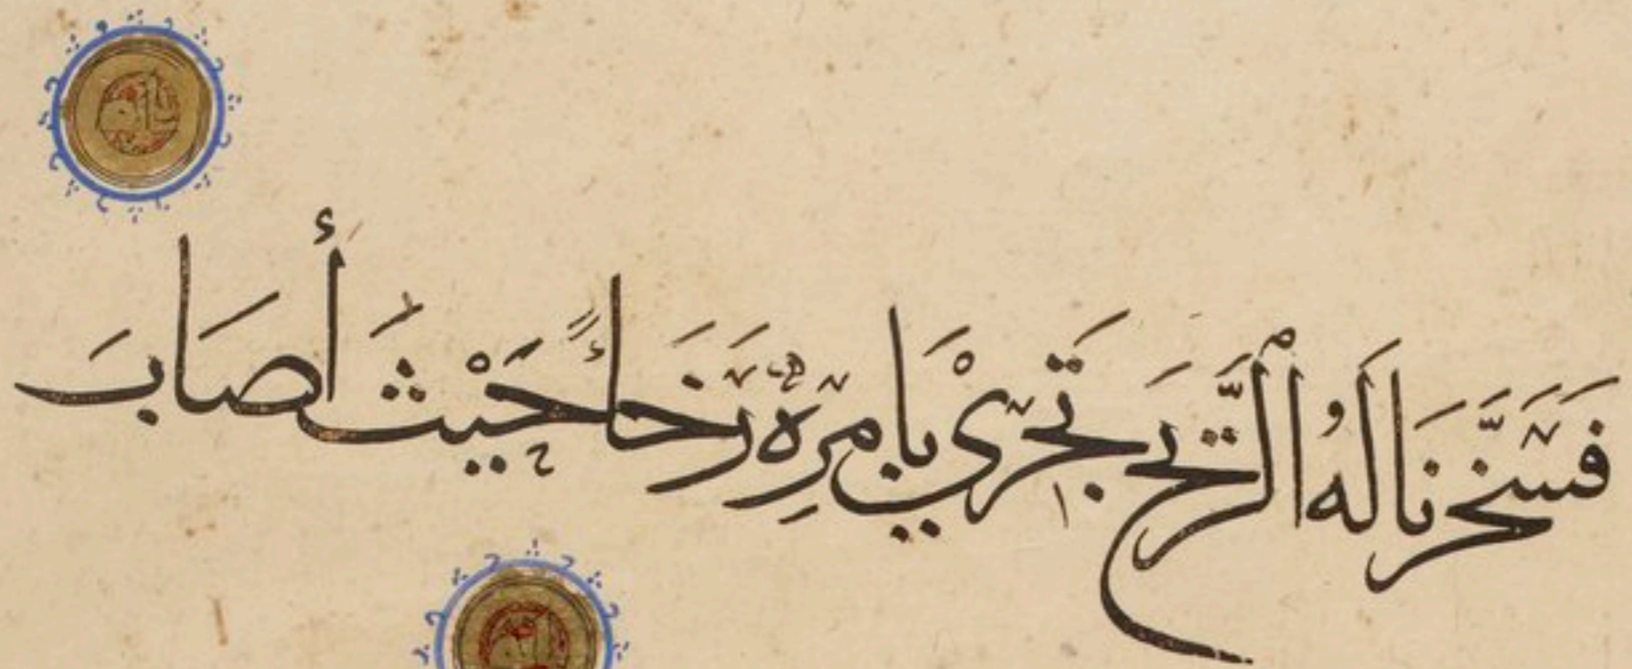 فَسَخَّرْنَا لَهُ ٱلرِّيحَ تَجْرِي بِأَمْرِهِ رُخَاءً حَيْثُ أَصَابَ